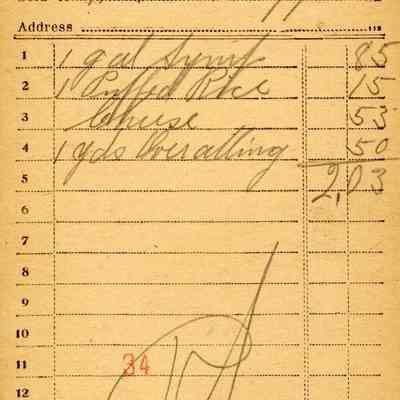 Address
1 1 gal Syrup 85
2 1 Puffed Rice 15
3 Cheese 53
4 1 yds Overalling 50
5 2,03
6
7
8
9
10
11 34
12